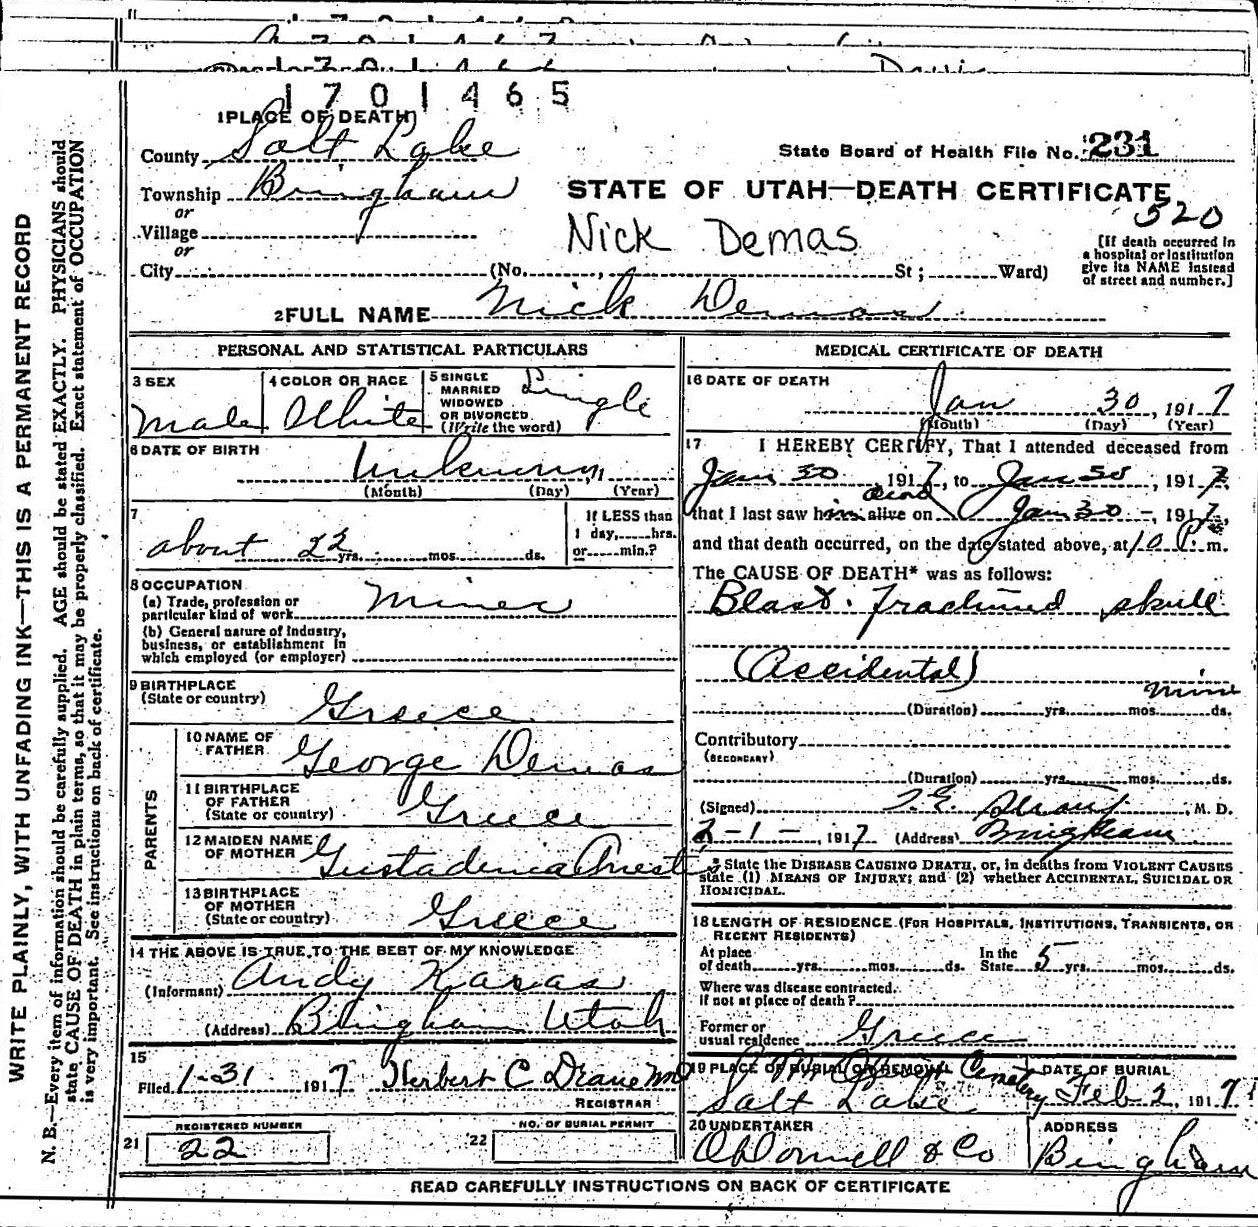 1701465
1 PLACE OF DEATH
County Salt Lake
State Board of Health File No. 231
Township Bingham
STATE OF UTAH—DEATH CERTIFICATE
520
or
Village
Nick Demas
or
City (No. , St; Ward)
[If death occurred in
a hospital or institution
give its NAME instead
of street and number.]
2 FULL NAME Nick Demas
PERSONAL AND STATISTICAL PARTICULARS
3 SEX
Male
4 COLOR OR RACE
White
5 SINGLE
MARRIED
WIDOWED
OR DIVORCED
(Write the word)
Single
6 DATE OF BIRTH
Unknown
(Month) (Day) (Year)
7
about 22 yrs. mos. ds.
If LESS than
1 day, hrs.
or min.?
8 OCCUPATION
(a) Trade, profession or
particular kind of work Miner
(b) General nature of Industry,
business, or establishment in
which employed (or employer)
9 BIRTHPLACE
(State or country)
Greece
PARENTS
10 NAME OF
FATHER
George Demas
11 BIRTHPLACE
OF FATHER
(State or country)
Greece
12 MAIDEN NAME
OF MOTHER
13 BIRTHPLACE
OF MOTHER
(State or country)
Greece
14 THE ABOVE IS TRUE TO THE BEST OF MY KNOWLEDGE
(Informant) Andy Karas
(Address) Bingham Utah
15
Filed 1-31 1917 Herbert C Drane MD
REGISTRAR
21
REGISTERED NUMBER
22
22
NO. OF BURIAL PERMIT
MEDICAL CERTIFICATE OF DEATH
16 DATE OF DEATH
Jan 30, 1917
(Month) (Day) (Year)
17 I HEREBY CERTIFY, That I attended deceased from
Jan 30, 1917, to Jan 30, 1917,
dead
that I last saw him alive on Jan 30 -, 1917,
and that death occurred, on the date stated above, at 10 P. m.
The CAUSE OF DEATH* was as follows:
Blast. Fractured skull
(Accidental)
mine
(Duration) yrs. mos. ds.
Contributory
(SECONDARY)
(Duration) yrs. mos. ds.
(Signed) , M. D.
2-1-, 1917 (Address) Bingham
* State the DISEASE CAUSING DEATH, or, in deaths from VIOLENT CAUSES
state (1) MEANS OF INJURY; and (2) whether ACCIDENTAL, SUICIDAL OR
HOMICIDAL.
18 LENGTH OF RESIDENCE (FOR HOSPITALS, INSTITUTIONS, TRANSIENTS, OR
RECENT RESIDENTS)
At place
of death yrs. mos. ds.
In the
State 5 yrs. mos. ds.
Where was disease contracted
if not at place of death?
Former or
usual residence Greece
19 PLACE OF BURIAL OR REMOVAL
Cemetery
Salt Lake
DATE OF BURIAL
Feb 2, 1917
20 UNDERTAKER
O'Donnell & Co
ADDRESS
Bingham
READ CAREFULLY INSTRUCTIONS ON BACK OF CERTIFICATE
WRITE PLAINLY, WITH UNFADING INK—THIS IS A PERMANENT RECORD
N. B.—Every item of information should be carefully supplied. AGE should be stated EXACTLY. PHYSICIANS should
state CAUSE OF DEATH in plain terms, so that it may be properly classified. Exact statement of OCCUPATION
is very important. See instructions on back of certificate.